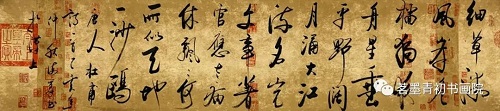 細草微
風岸危
檣獨夜
舟星垂
平野闊
月涌大江
流名豈
文章著
官應老病
休飄飄何
所似天地
一沙鷗
唐人杜甫
名墨青初书画院